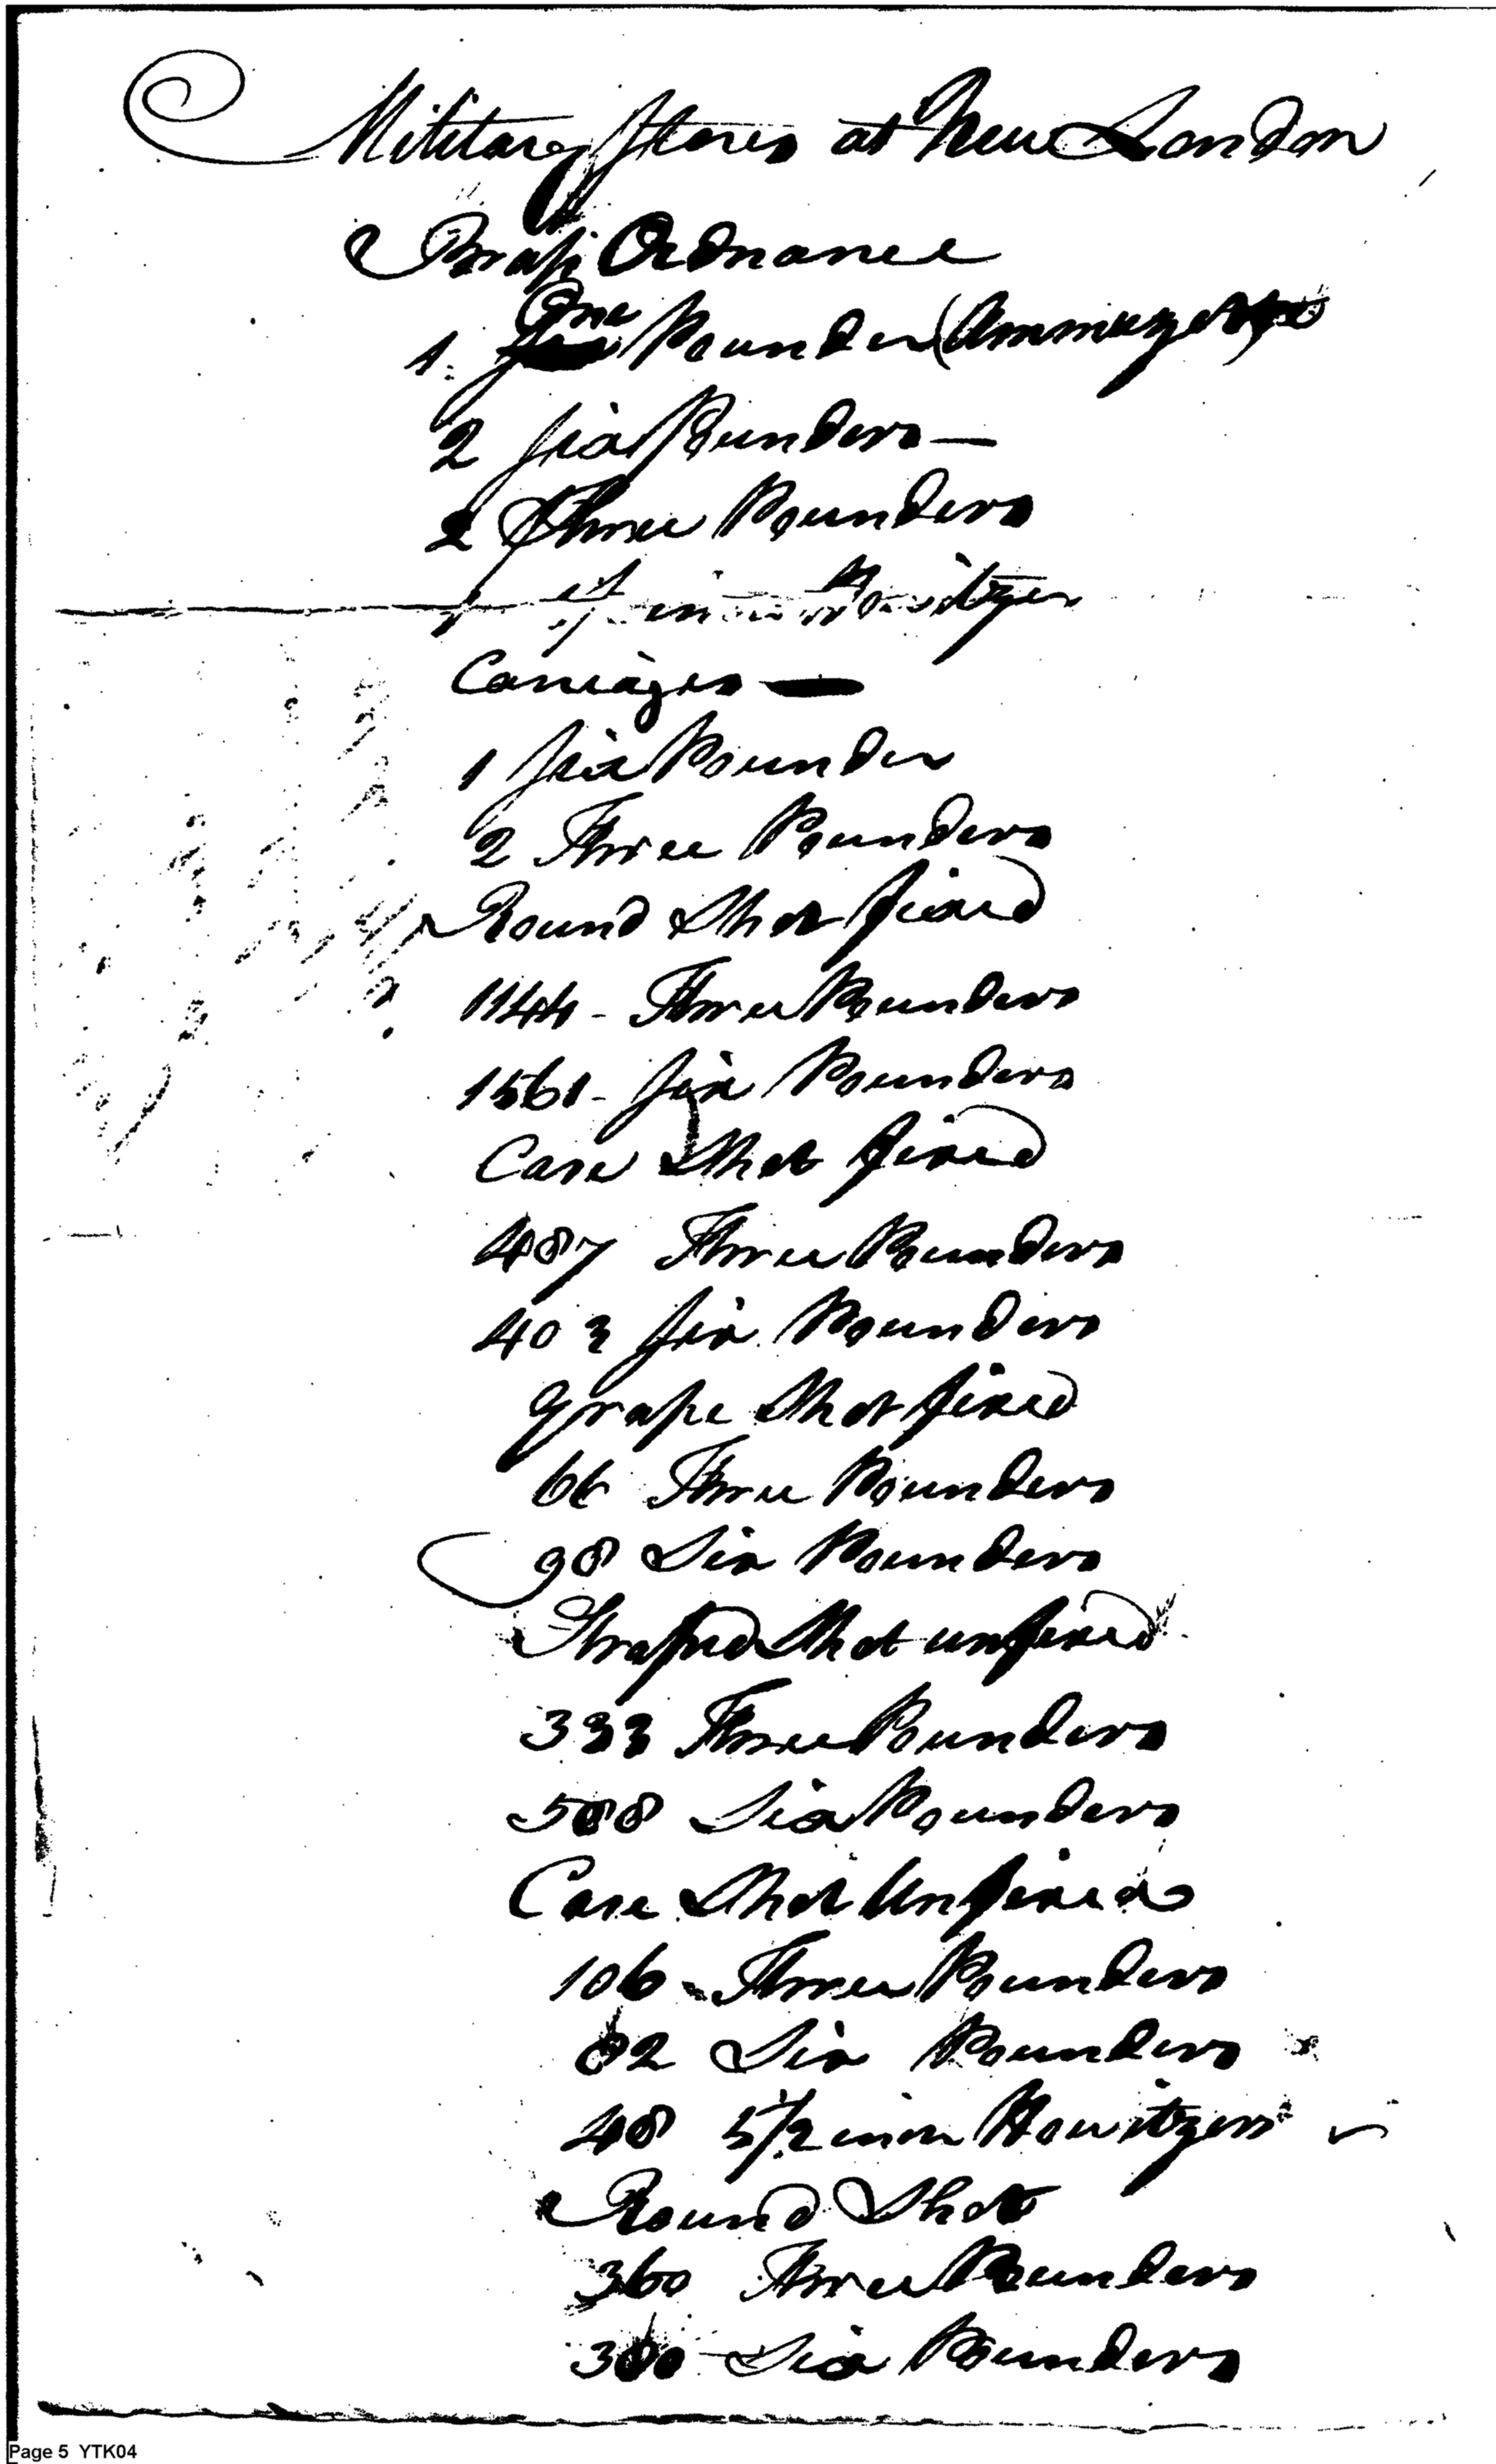 Military Stores at New London
Brass Ordnance
One
1 Pounder (Ammuzette)
2 Six Pounders —
2 Three Pounders
1 inch Howitzer
Carriages —
1 Six Pounder
2 Three Pounders
Round Shot fixed
1144 - Three Pounders
1561 - Six Pounders
Case Shot fixed
487 Three Pounders
403 Six Pounders
Grape Shot fixed
66 Three Pounders
98 Six Pounders
Straped Shot unfixed
333 Three Pounders
588 Six Pounders
Case Shot Unfixed
106 - Three Pounders
82 Six Pounders
48 5 1/2 inch Howitzers
Round Shot
360 Three Pounders
Six Pounders
Page 5 YTK04